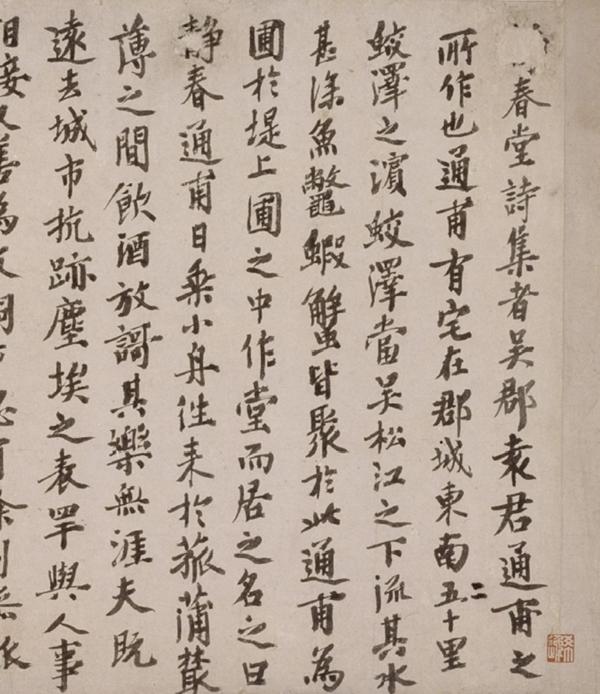 春堂詩集者吳郡袁君通甫之
所作也通甫有宅在郡城東南五十里
蛟澤之濱蛟澤當吳松江之下流其水
甚深魚鼈蝦蟹皆聚於此通甫為
圃於堤上圃之中作堂而居之名之曰
靜春通甫日乘小舟往来於菰蒲叢
薄之間飲酒放謌其樂無涯夫既
遠去城市抗跡塵埃之表罕與人事
相接又善為文詞